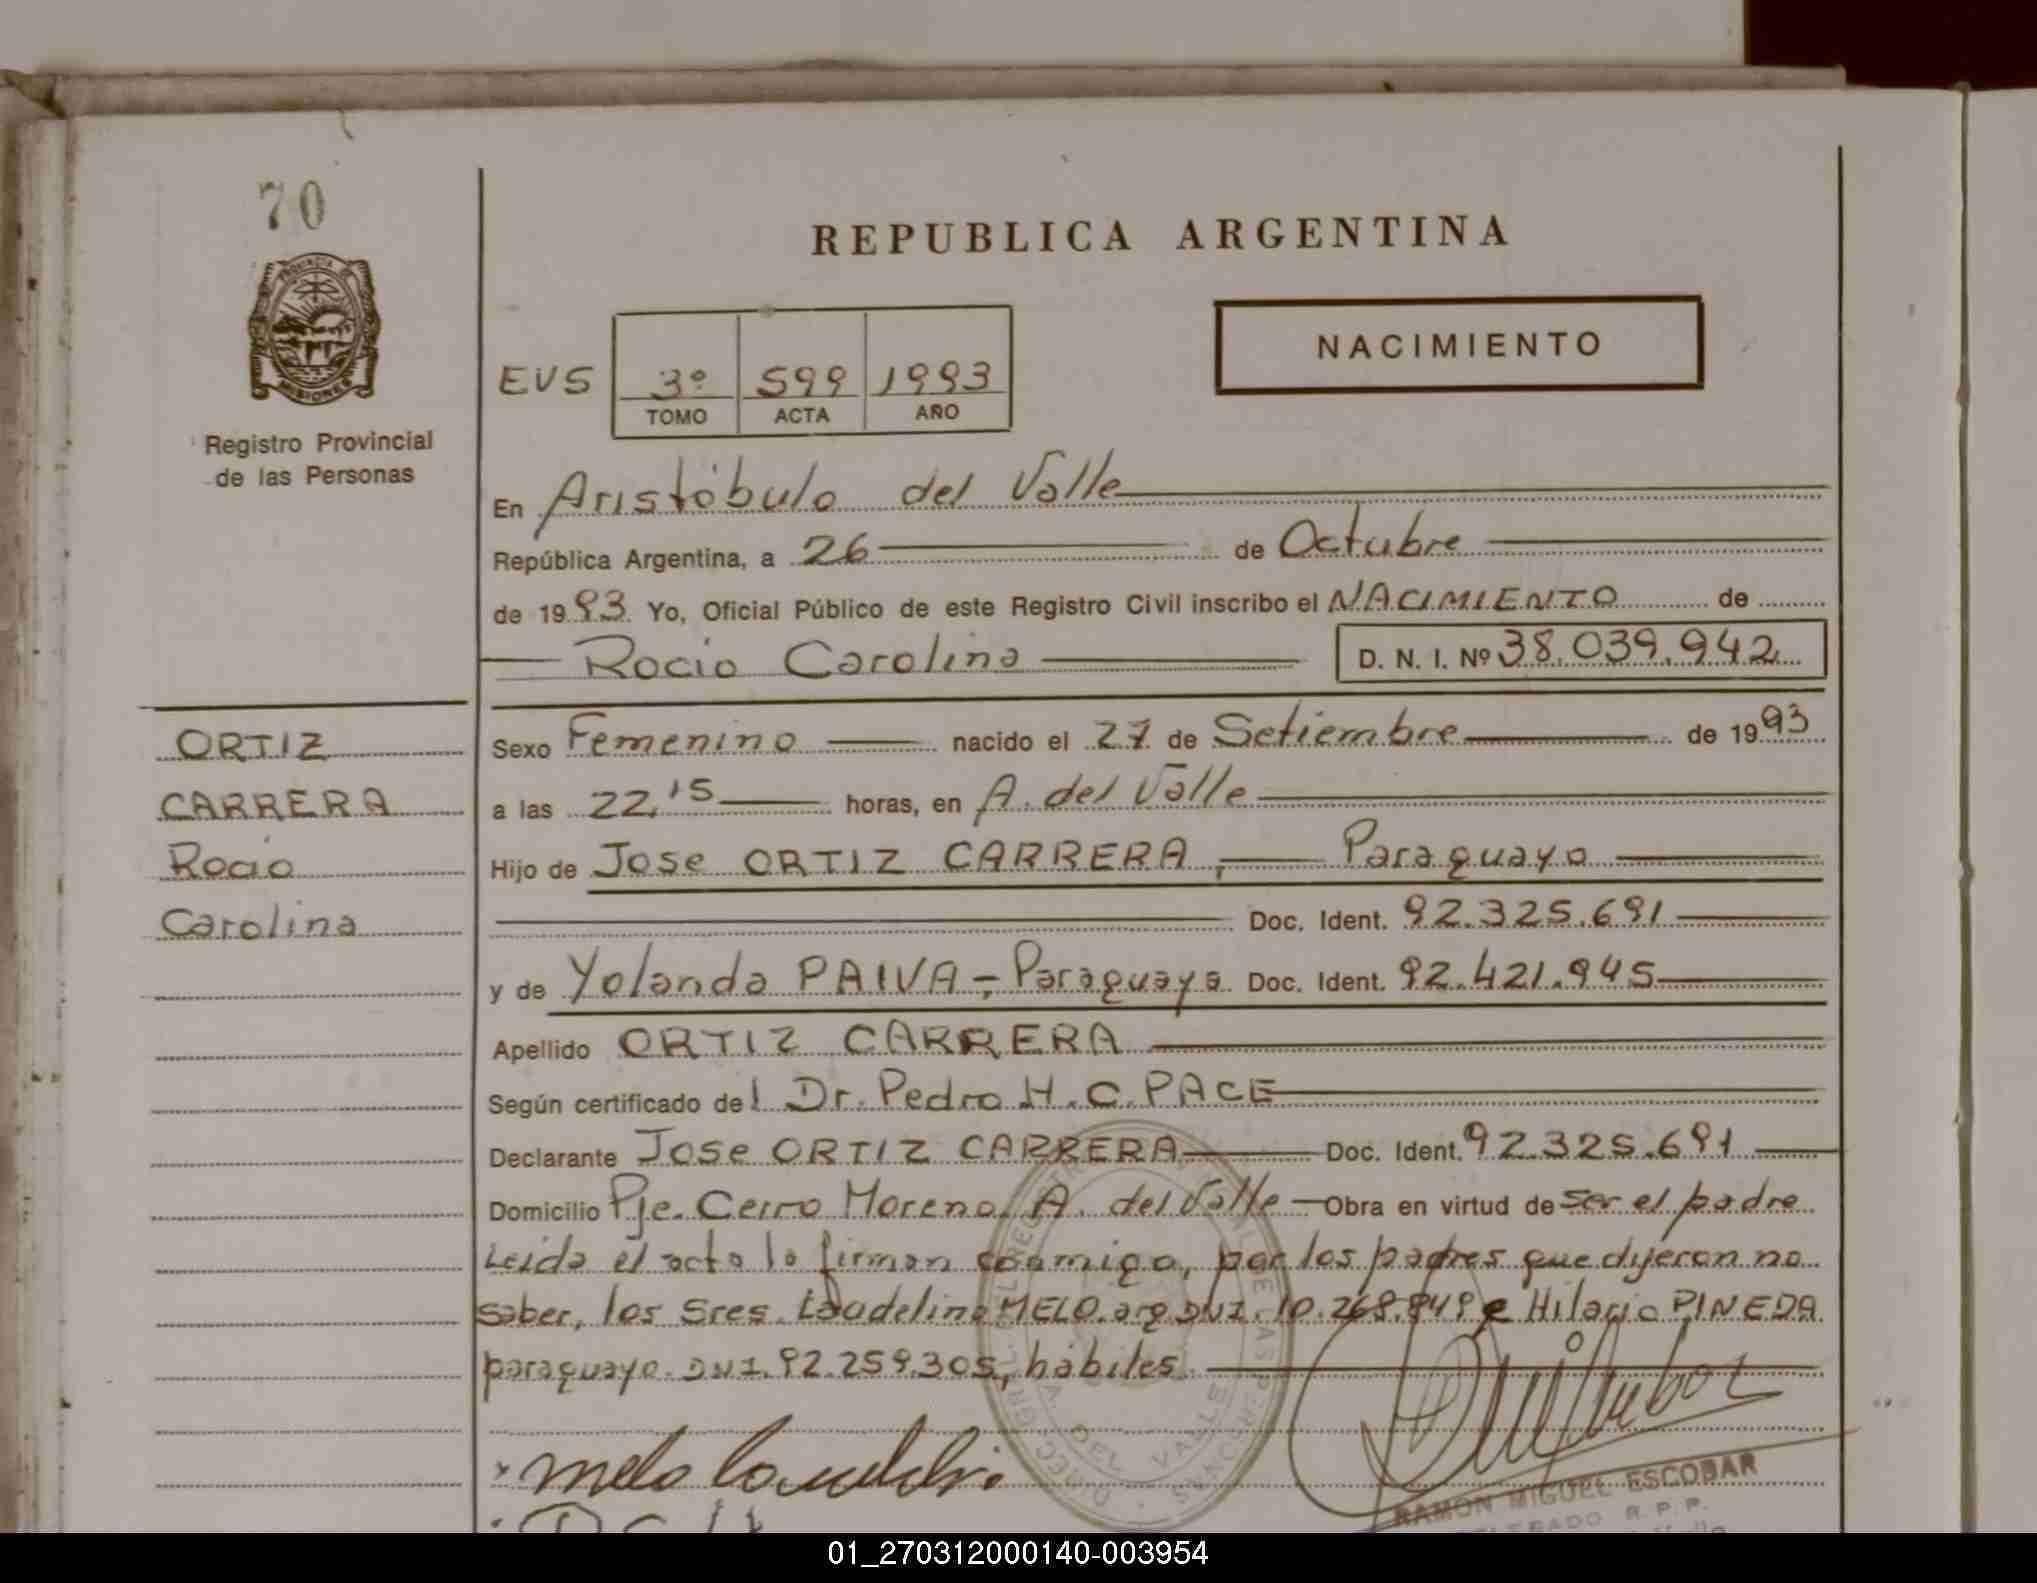 70
REPUBLICA ARGENTINA
PROVINCIA DE
MISIONES
NACIMIENTO
EVS 3º 599 1993
TOMO ACTA AÑO
Registro Provincial
de las Personas
En Aristóbulo del Valle
República Argentina, a 26 de Octubre
de 1993 Yo, Oficial Público de este Registro Civil inscribo el NACIMIENTO de
Rocio Carolina D. N. I. Nº 38.039.942
ORTIZ
CARRERA
Rocio
Carolina
Sexo Femenino nacido el 27 de Setiembre de 1993
a las 22,15 horas, en A. del Valle
Hijo de Jose ORTIZ CARRERA, Paraguayo
Doc. Ident. 92.325.691
y de Yolanda PAIVA,- Paraguaya Doc. Ident. 92.421.945
Apellido ORTIZ CARRERA
Según certificado del Dr. Pedro H.C. PACE
Declarante Jose ORTIZ CARRERA Doc. Ident. 92.325.691
Domicilio Pje. Cerro Moreno A. del Valle Obra en virtud de ser el padre
Leida el acta la firman conmigo, por los padres que dijeron no
saber, los Sres. Laudelino MELO. arg. DNI. 10.268.849 e Hilario PINEDA
paraguayo. DNI. 92.259.305, habiles.
melo laudelino
A. DEL VALLE
RAMON MIGUEL ESCOBAR
DELEGADO R. P. P.
01_270312000140-003954